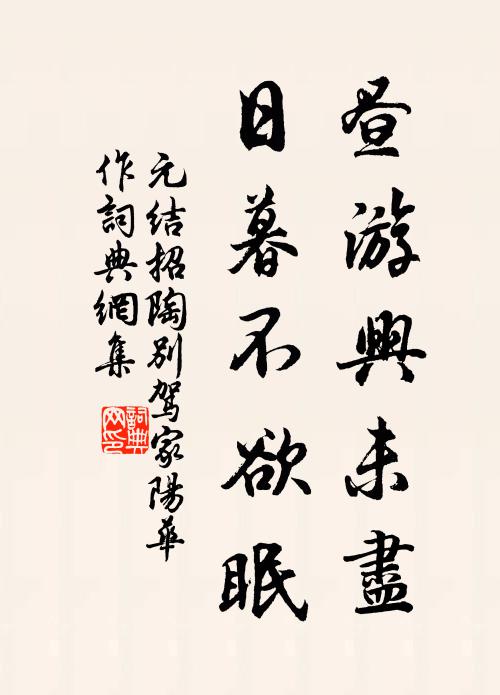 昼游興未盡
日暮不欲眠
元结招陶别駕家陽華
作詞典網集
詞典
网印